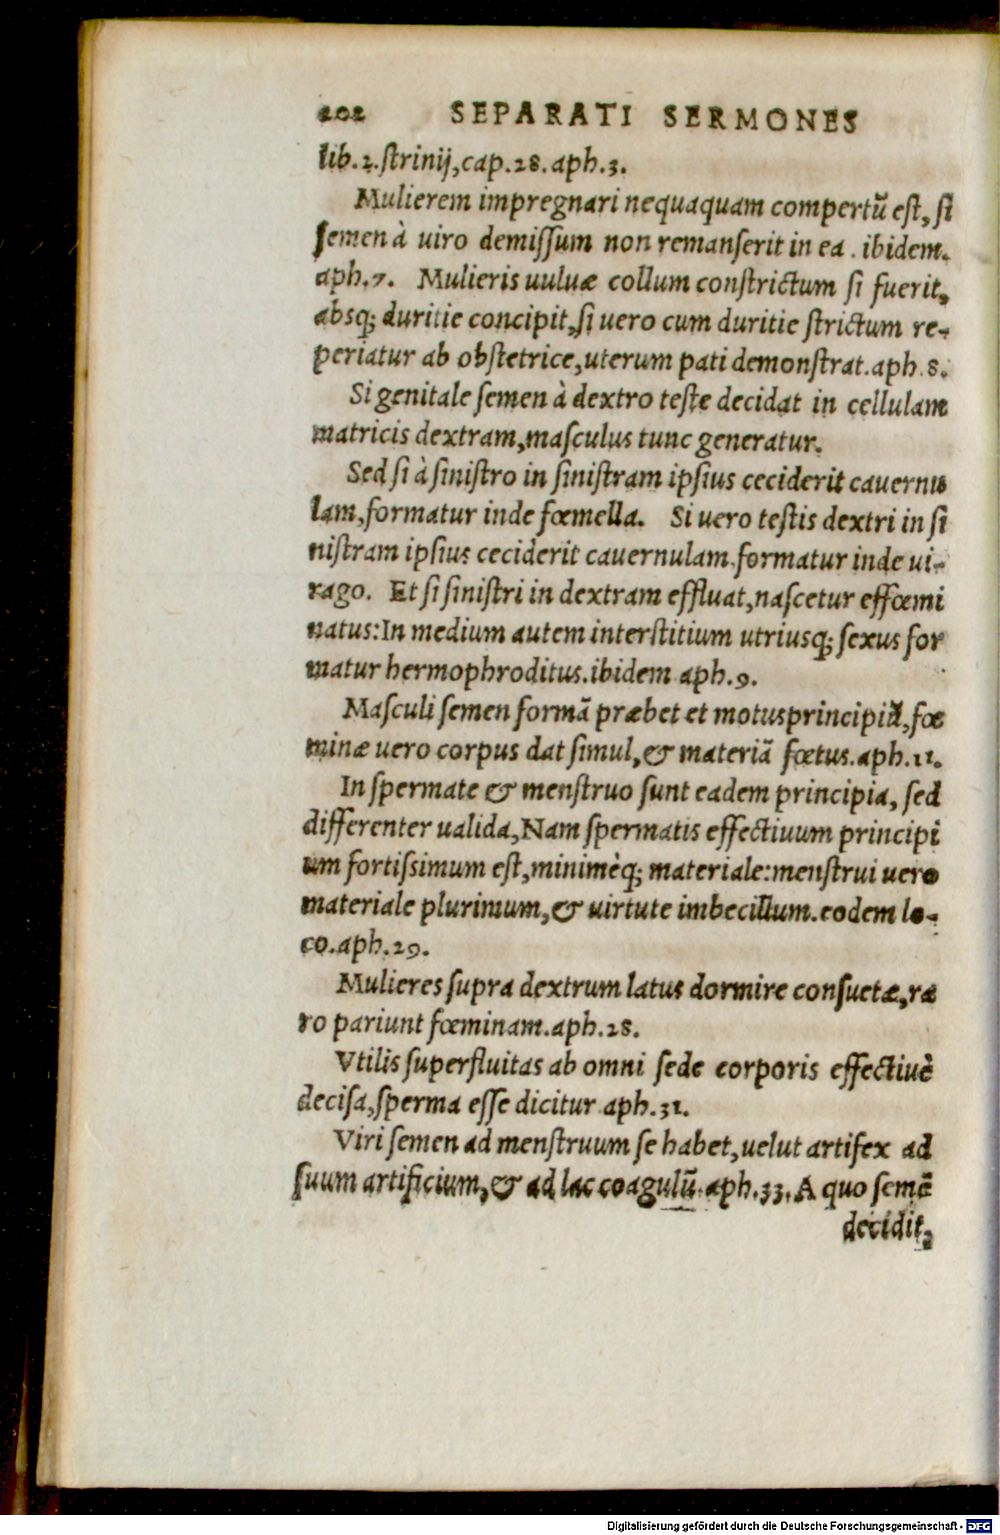 202 SEPARATI SERMONES
lib.2.ſtrinij,cap.28.aph.3.
Mulierem impregnari nequaquam compertũ eſt, ſi
ſemen à uiro demiſſum non remanſerit in ea . ibidem.
aph.7. Mulieris uuluæ collum conſtrictum ſi fuerit,
absq; duritie concipit,ſi uero cum duritie ſtrictum re-
periatur ab obſtetrice,uterum pati demonſtrat.aph.8.
Si genitale ſemen à dextro teſte decidat in cellulam
matricis dextram,maſculus tunc generatur.
Sed ſi à ſiniſtro in ſiniſtram ipſius ceciderit cauernu
lam,formatur inde fœmella. Si uero teſtis dextri in ſi
niſtram ipſius ceciderit cauernulam.formatur inde ui-
rago. Et ſi ſiniſtri in dextram effluat,naſcetur effœmi
natus:In medium autem interſtitium utriusq; ſexus for
matur hermophroditus.ibidem aph.9.
Maſculi ſemen formã præbet et motus principiũ,fœ
minæ uero corpus dat ſimul,& materiã fœtus.aph.11.
In ſpermate & menſtruo ſunt eadem principia, ſed
differenter ualida,Nam ſpermatis effectiuum principi
um fortiſsimum eſt,minimèq; materiale:menſtrui uero
materiale plurimum,& uirtute imbecillum.eodem lo-
co.aph.29.
Mulieres ſupra dextrum latus dormire conſuetæ,ra
ro pariunt fœminam.aph.28.
Vtilis ſuperfluitas ab omni ſede corporis effectiuè
deciſa,ſperma eſſe dicitur aph.31.
Viri ſemen ad menſtruum ſe habet,uelut artifex ad
ſuum artificium,& ad lac coagulũ.aph.33.A quo ſemẽ
decidit,
Digitalisierung gefördert durch die Deutsche Forschungsgemeinschaft - DFG